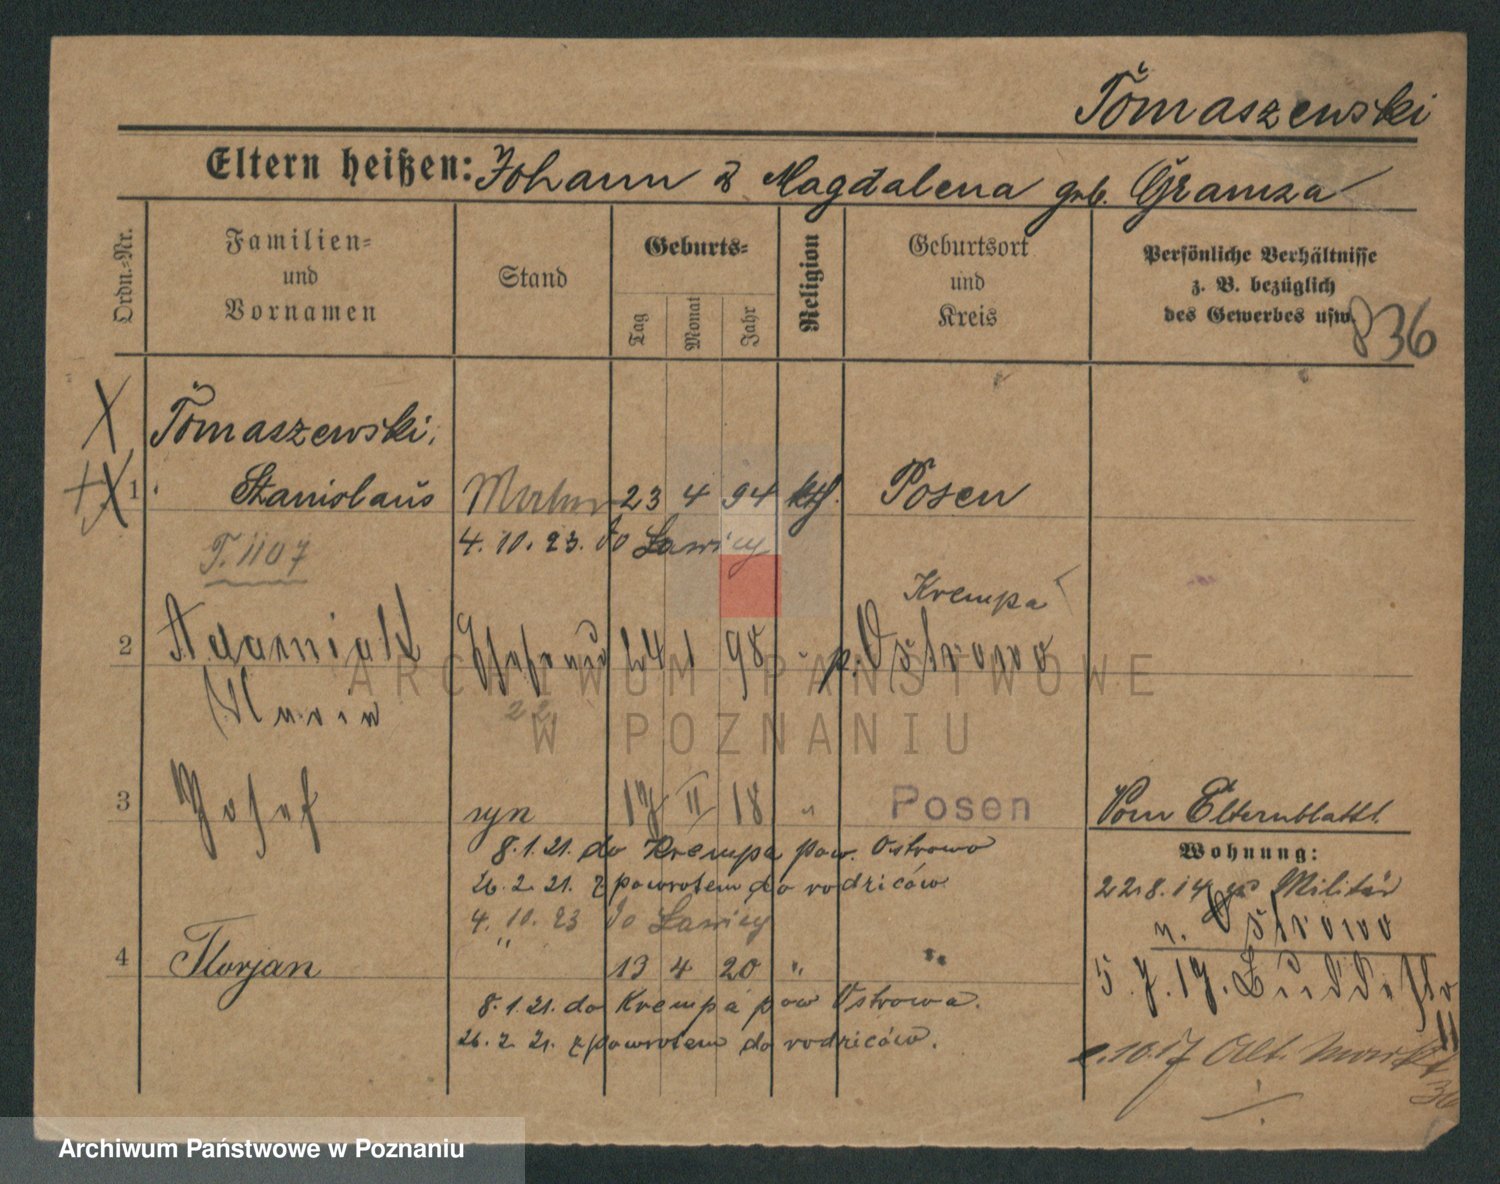 Tomaszewski
Eltern heißen: Johann & Magdalena geb. Gramza
Ordn.-Nr.
Familien-
und
Vornamen
Stand
Geburts-
Tag
Monat
Jahr
Religion
Geburtsort
und
Kreis
Persönliche Verhältnisse
z. B. bezüglich
des Gewerbes usw.
836
Tomaszewski,
1 Stanislaus 23 4 94 kth. Posen
T. 1107
4. 10. 23. do Ławicy
Krempa
2 Adamiak Ehefrau 24 1 98 " p. Ostrowo
Maria
22
3 Josef syn 17 II 18 " Posen
Vom Elternblatt.
8.1.21. do Krempa pow. Ostrowo
26. 2. 21. z powrotem do rodziców
4. 10. 23 do Ławicy
Wohnung:
22.8.14 zum Militär
n. Ostrowo
4 Florjan " 13 4 20 " "
5.7.17.
8.1.21. do Krempa pow Ostrowa.
26. 2. 21. z powrotem do rodziców.
10.17 Alt. Markt
36
ARCHIWUM PAŃSTWOWE
W POZNANIU
Archiwum Państwowe w Poznaniu